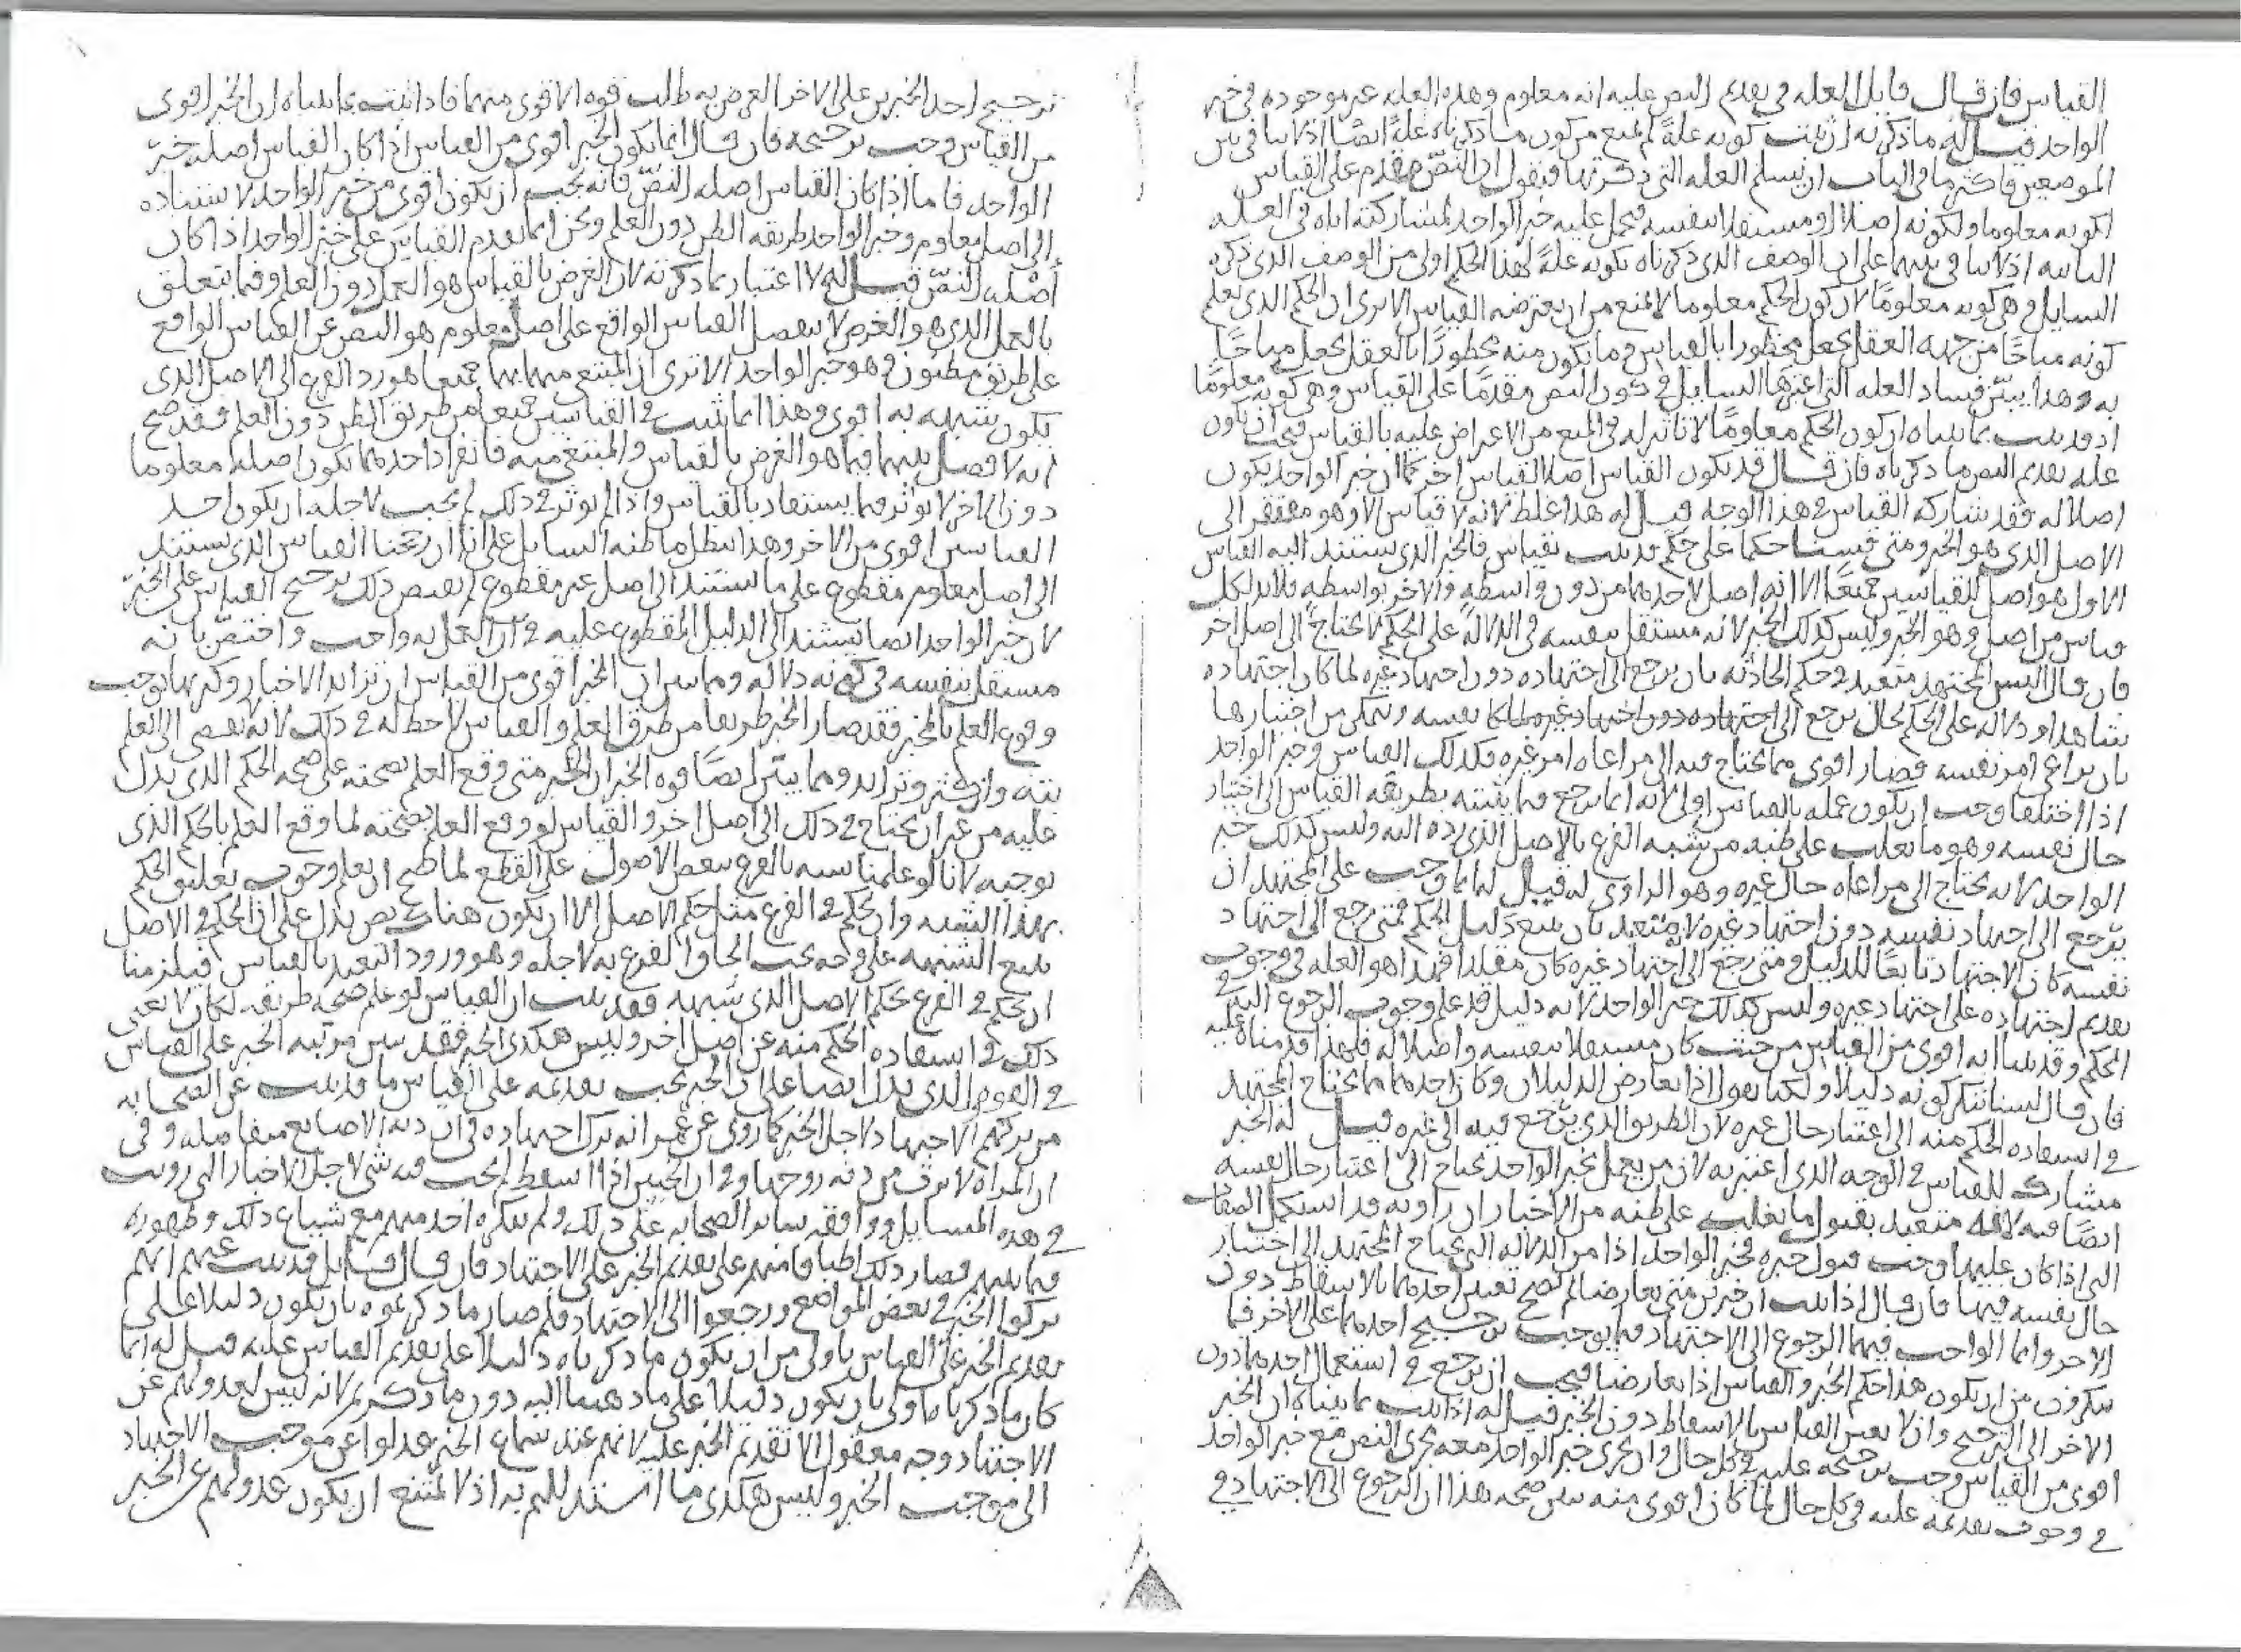 القياس فان قال قايل العله في تقديم النص عليه انه معلوم وهذه العله غير موجوده في خبر
الواحد قيل له ما ذكرته ان ثبت كونه علةً لم يمنع من كون ما ذكرناه علةً ايضًا اذ لا تنافي بين
الموضعين فاكثر ما في الباب ان نسلم العله التي ذكرتها فنقول ان النصّ مقدم على القياس
لكونه معلوما ولكونه اصلا او مستقلا بنفسه فيحمل عليه خبر الواحد لمشاركته اياه في العله
الثانيه اذ لا تنافي بينهما على ان الوصف الذي ذكرناه بكونه علةً لهذا الحكم اولى من الوصف الذي ذكره
السايل وهي كونه معلومًا لان كون الحكم معلوما لا يمنع من ان يعترضه القياس الا ترى ان الحكم الذي نعلم
كونه مباحًا من جهه العقل يجعل محظورا بالقياس وما يكون منه محظورًا بالعقل يجعل مباحًا
به وهذا يبيّن فساد العله التي اعتبرها السايل في كون النص مقدمًا على القياس وهي كونه معلومًا
اذ قد ثبت بما بيناه ان كون الحكم معلومًا لا تاثير له في المنع من الاعتراض عليه بالقياس فيجب ان يكون
عله تقديم النص ما ذكرناه فان قال قد يكون القياس اصلا لقياس اخر كما ان خبر الواحد يكون
اصلا له فقد شاركه القياس في هذا الوجه قيل له هذا غلط لانه لا قياس الا وهو مفتقر الى
الاصل الذي هو الخبر ومتى قسنا حكما على حكم قد ثبت بقياس فالخبر الذي يستند اليه القياس
الاول هو اصل للقياسين جميعًا الا انه اصل لاحدهما من دون واسطه والاخر بواسطه فلا بد لكل
قياس من اصل وهو الخبر وليس كذلك الخبر لانه مستقل بنفسه في الدلالة على الحكم لا يحتاج الى اصل اخر
فان قال اليس المجتهد متعبد في حكم الحادثه بان يرجع الى اجتهاده دون اجتهاد غيره لما كان اجتهاده
بان يراعي امر نفسه فصار اقوى مما يحتاج فيه الى مراعاه امر غيره فكذلك القياس وخبر الواحد
اذا اختلفا وجب ان يكون عمله بالقياس اولى لانه انما يرجع فيما يثبته بطريقه القياس الى اختيار
حال نفسه وهو ما يغلب على ظنه من شبه الفرع بالاصل الذي رده اليه وليس كذلك خبر
الواحد لانه يحتاج الى مراعاه حال غيره وهو الراوي له قيل له انما وجب على المجتهد ان
يرجع الى اجتهاد نفسه دون اجتهاد غيره لانه متعبد بان يتبع دليل الحكم فمتى رجع الى اجتهاد
نفسه كان الاجتهاد تابعًا للدليل ومتى رجع الى اجتهاد غيره كان مقلدا فهذا هو العله في وجوب
تقديم اجتهاده على اجتهاد غيره وليس كذلك خبر الواحد لانه دليل قد علم وجوب الرجوع اليه في
الحكم وقد بينا انه اقوى من القياس من حيث كان مستقلا بنفسه واصلا له فلهذا قدمناه عليه
فان قال لسنا ننكر كونه دليلا ولكنا نقول اذا تعارض الدليلان وكان احدهما مما يحتاج المجتهد
في استفاده الحكم منه الى اعتبار حال غيره لان الطريق الذي يرجع فيه الى غيره قيل له الخبر
مشارك للقياس في الوجه الذي اعتبر به لان من يعمل بخبر الواحد يحتاج الى اعتبار حال نفسه
ايضًا فيه لانه متعبد بقبول ما يغلب على ظنه من الاخبار ان راويه قد استكمل الصفات
التي اذا كان عليها وجب قبول خبره فخبر الواحد اذا من الدلاله التي يحتاج المجتهد الى اختبار
حال نفسه فيها فان قال اذا ثبت ان خبرين متى تعارضا لم يصح تعيين احدهما بالاسقاط دون
الاخر وانما الواجب فيهما الرجوع الى الاجتهاد فيما يوجب ترجيح احدهما على الاخر فما
تنكرون من ان يكون هذا حكم الخبر والقياس اذا تعارضا فيجب ان يرجع في استعمال احدهما دون
الاخر الى الترجيح وان لا يعين القياس بالاسقاط دون الخبر قيل له اذا ثبت بما بيناه ان الخبر
اقوى من القياس وجب ترجيحه عليه في كل حال وان يجري خبر الواحد معه مجرى النص مع خبر الواحد
في وجوب تقديمه عليه في كل حال لما كان اقوى منه يبين صحه هذا ان الرجوع الى الاجتهاد في
ترجيح احد الخبرين على الاخر الغرض به طلب قوه الاقوى منهما فاذا ثبت بما بيناه ان الخبر اقوى
من القياس وجب ترجيحه فان قال انما يكون الخبر اقوى من القياس اذا كان القياس اصله خبر
الواحد فاما اذا كان القياس اصله النصّ فانه يجب ان يكون اقوى من خبر الواحد لاستناده
الى اصل معلوم وخبر الواحد طريقه الظن دون العلم ونحن انما نقدم القياس على خبر الواحد اذا كان
اصله النصّ قيل له لا اعتبار بما ذكرته لان الغرض بالقياس هو العمل دون العلم وفيما يتعلق
بالعمل الذي هو الغرض لا ينفصل القياس الواقع على اصل معلوم هو النص عن القياس الواقع
على طريق مظنون وهو خبر الواحد الا ترى ان المبتغى منهما بهما جميعا هو رد الفرع الى الاصل الذي
يكون شبهه به اقوى وهذا انما يثبت في القياسين جميعا من طريق الظن دون العلم فقد صح
انه لا فصل بينهما فيما هو الغرض بالقياس والمبتغى منه فانفراد احدهما بكون اصله معلوما
دون الاخر لا يوثر فيما يستفاد بالقياس واذا لم يوثر في ذلك لم يجب لاجله ان يكون احد
القياسين اقوى من الاخر وهذا يبطل ما ظنه السايل على انا ان رجحنا القياس الذي يستند
الى اصل معلوم مقطوع على ما يستند الى اصل غير مقطوع لم يقتض ذلك ترجيح القياس على الخبر
لان خبر الواحد ايضا يستند الى الدليل المقطوع عليه في ان العمل به واجب واختصّ بانه
مستقل بنفسه في كونه دلاله ومما يبين ان الخبر اقوى من القياس ان تزايد الاخبار وكثرتها يوجب
وقوع العلم بالمخبر فقد صار الخبر طريقا من طرق العلم والقياس لا حظ له في ذلك لانه لا يفضي الى العلم
بته وان كثر وتزايد ومما يبيّن ايضًا قوه الخبر ان الخبر متى وقع العلم بصحته على صحه الحكم الذي يدل
عليه من غير ان يحتاج في ذلك الى اصل اخر والقياس لو وقع العلم بصحته لما وقع العلم بالحكم الذي
يوجبه لانا لو علمنا شبه بالفرع ببعض الاصول على القطع لما صح ان نعلم وجوب تعليق الحكم
بهذا الشبه وان نحكم في الفرع مثل حكم الاصل الا ان يكون هناك نص يدل على ان الحكم في الاصل
يتبع الشبهه على وجه يجب الحاق الفرع به لاجله وهو ورود التعبد بالقياس فيلزمنا
ان نحكم في الفرع بحكم الاصل الذي شبهه فقد ثبت ان القياس لو علم صحه طريقه لكان لا يغني
ذلك في استفاده الحكم منه عن اصل اخر وليس هكذى الخبر فقد تبين مرتبه الخبر على القياس
في القوه والذي يدل ايضا على ان الخبر يجب تقديمه على القياس ما قد ثبت عن الصحابه
من تركهم الاجتهاد لاجل الخبر كما روى عن عمر انه ترك اجتهاده في ان ديه الاصابع بمفاصله وفي
ان المراه لا ترث من ديه زوجها وفي ان الجنين اذا اسقط لم يجب فيه شي لاجل الاخبار التي رويت
في هذه المسايل ووافقه ساير الصحابه على ذلك ولم ينكره احد منهم مع شياع ذلك وظهوره
فيما بينهم فصار ذلك اطباقا منهم على تقديم الخبر على الاجتهاد فان قال قايل قد ثبت عنهم انهم
تركوا الخبر في بعض المواضع ورجعوا الى الاجتهاد فلم صار ما ذكرتموه بان يكون دليلا على
تقديم الخبر على القياس باولى من ان يكون ما ذكرناه دليلا على تقديم القياس عليه قيل له انما
كان ما ذكرنا باولى بان يكون دليلا على ما ذهبنا اليه دون ما ذكرتم لانه ليس لعدولهم عن
الاجتهاد وجه معقول الا تقديم الخبر عليه لانهم عند سماع الخبر عدلوا عن موجب الاجتهاد
الى موجب الخبر وليس هكذى ما استدللتم به اذ لا يمتنع ان يكون عدولهم عن الخبر